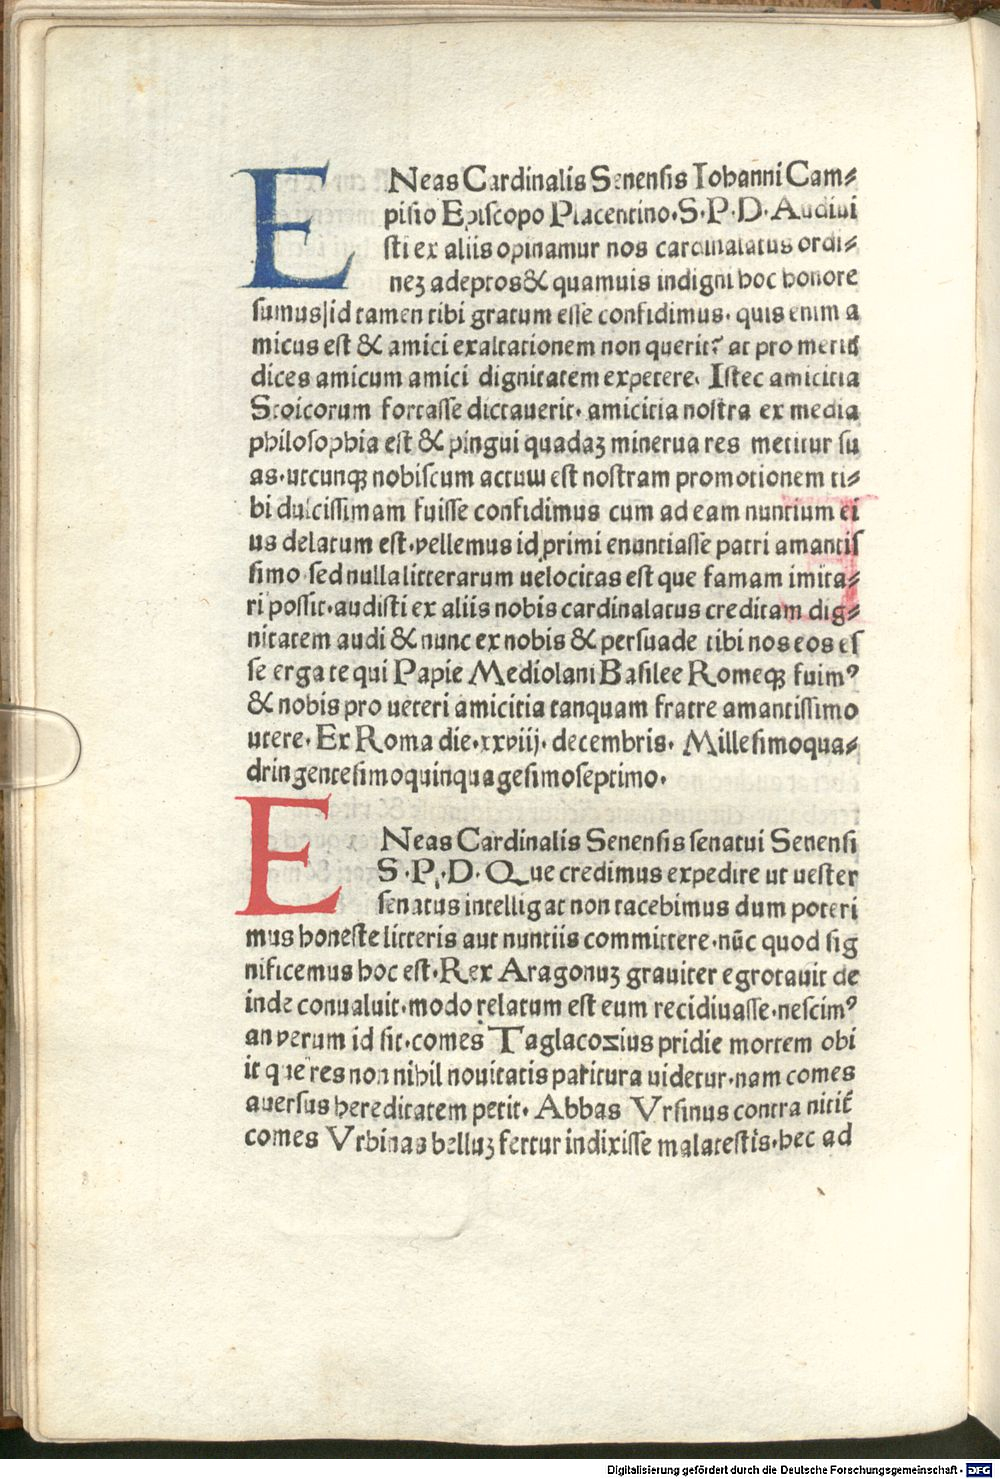 ENeas Cardinalis Senensis Iohanni Cam-
pisio Episcopo Placentino. S. P. D. Audiui
sti ex aliis opinamur nos cardinalatus ordi-
neʒ adeptos & quamuis indigni hoc honore
sumus/id tamen tibi gratum esse confidimus. quis enim a
micus est & amici exaltationem non querit? at pro meritis
dices amicum amici dignitatem expetere. Istec amicitia
Stoicorum fortasse dictauerit. amicitia nostra ex media
philosophia est & pingui quadaʒ minerua res metitur su
as. utcunqꝫ nobiscum actum est nostram promotionem ti-
bi dulcissimam fuisse confidimus cum ad eam nuntium ei
us delatum est. vellemus id primi enuntiasse patri amantis
simo sed nulla litterarum uelocitas est que famam imita-
ri possit. audisti ex aliis nobis cardinalatus creditam dig-
nitatem audi & nunc ex nobis & persuade tibi nos eos es
se erga te qui Papie Mediolani Basilee Romeqꝫ fuimꝰ
& nobis pro ueteri amicitia tanquam fratre amantissimo
utere. Ex Roma die. xxviij. decembris. Millesimoqua-
dringentesimoquinquagesimoseptimo.
ENeas Cardinalis Senensis senatui Senensi
S. P. D. Que credimus expedire ut uester
senatus intelligat non tacebimus dum poteri
mus honeste litteris aut nuntiis committere. nūc quod sig
nificemus hoc est. Rex Aragonuʒ grauiter egrotauit de
inde conualuit. modo relatum est eum recidiuasse. nescimꝰ
an verum id sit. comes Taglacozius pridie mortem obi
it que res non nihil nouitatis paritura uidetur. nam comes
auersus hereditatem petit. Abbas Vrsinus contra nitit̄
comes Vrbinas belluʒ fertur indixisse malatestis. hec ad
Digitalisierung gefördert durch die Deutsche Forschungsgemeinschaft - DFG